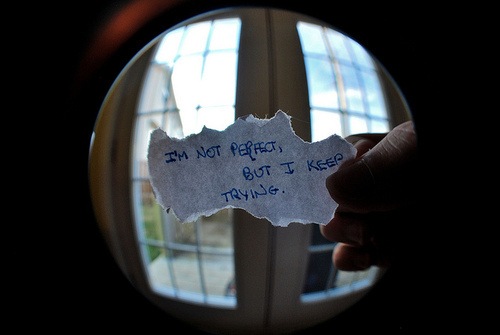 I'M NOT PERFECT,
BUT I KEEP
TRYING.